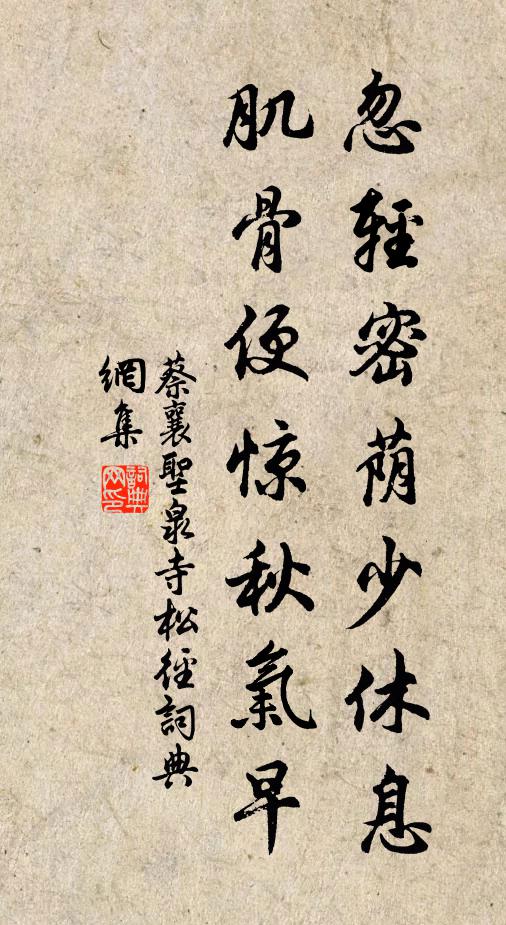 忽輕密荫少休息
肌骨便惊秋氣早
蔡襄聖泉寺松徑詞典
網集
詞典
网印